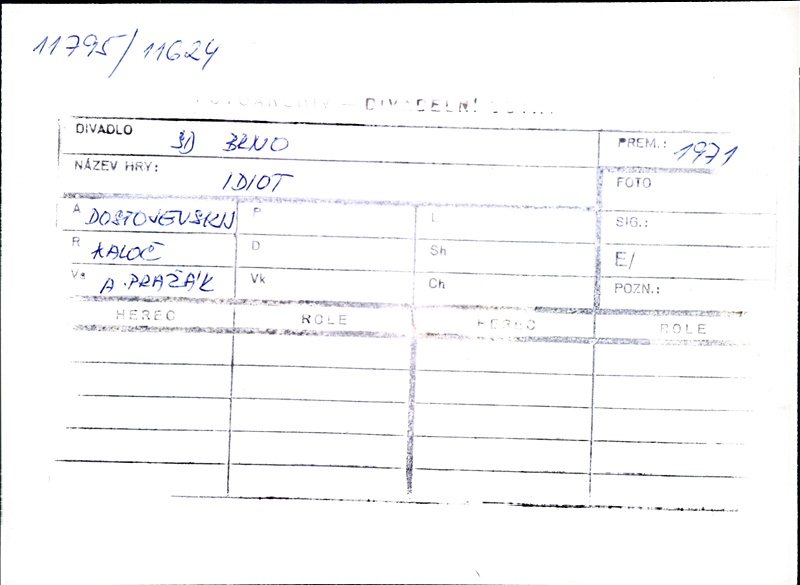 11795/11624
DIVADELNÍ
DIVADLO SD BRNO PREM.: 1971
NÁZEV HRY: IDIOT FOTO
A DOSTOJEVSKIJ P L SIG.:
R KALOČ D Sh E/
Va A. PRAŽÁK Vk Ch POZN.:
HEREC ROLE HEREC ROLE